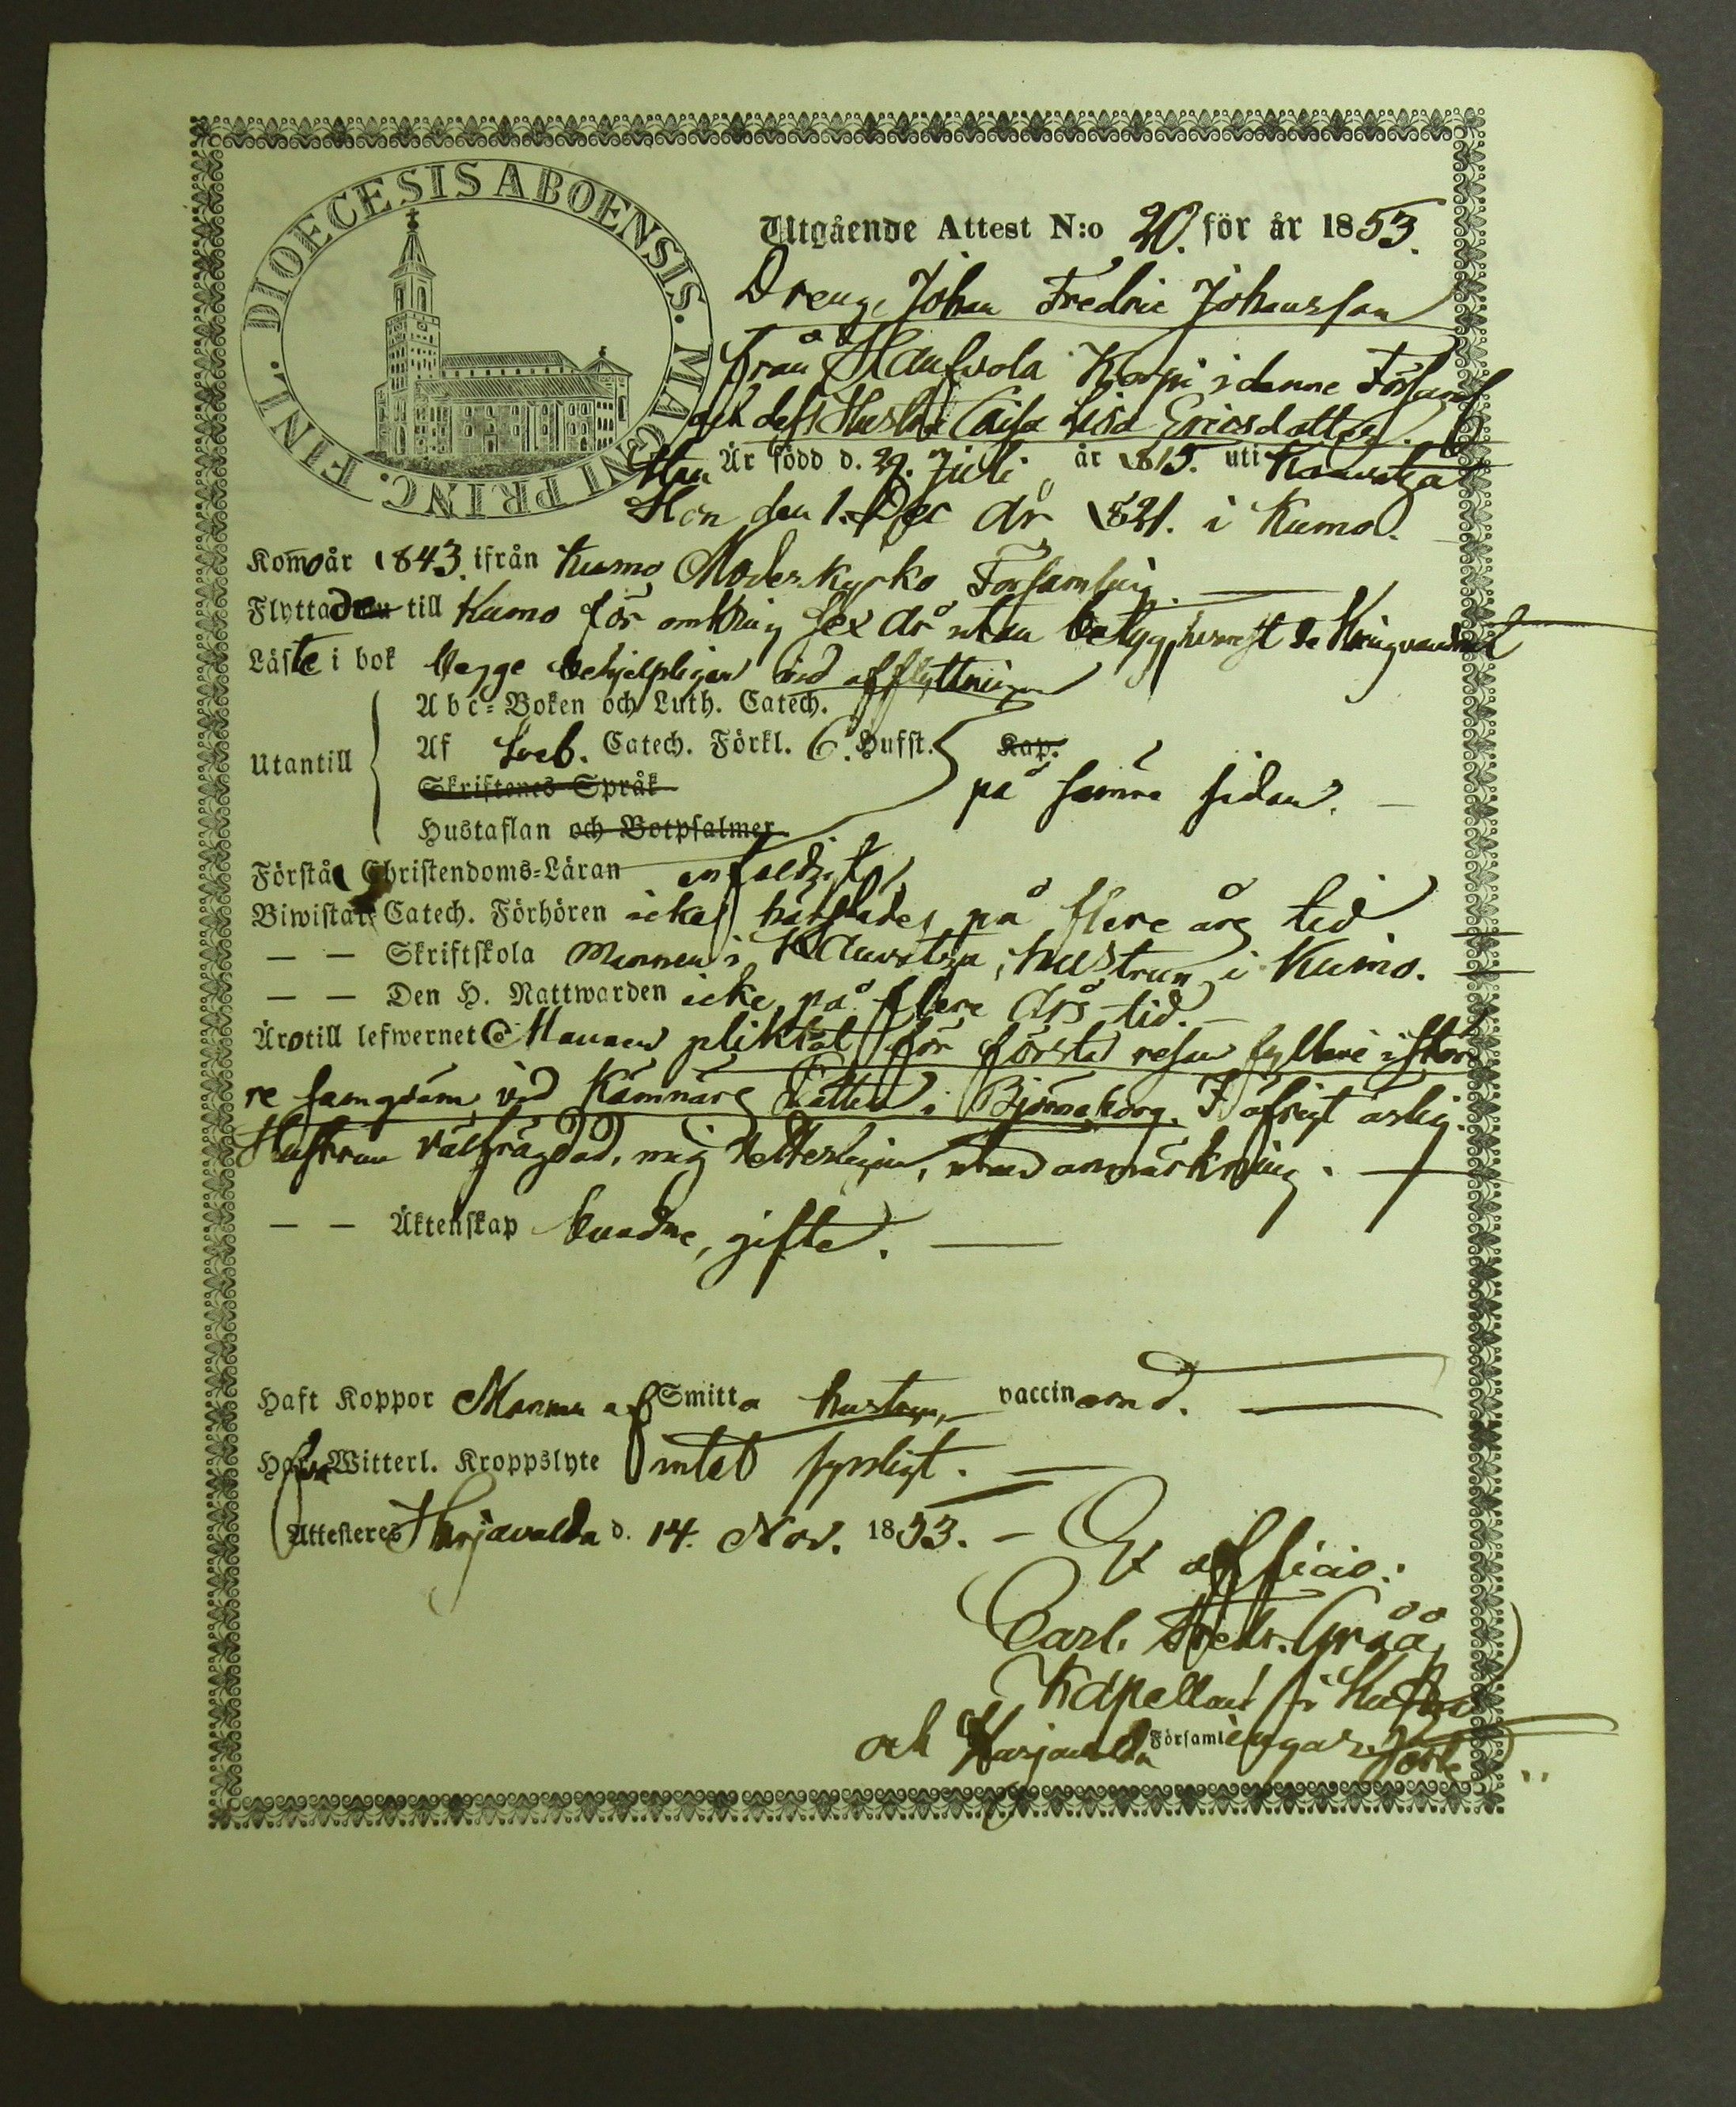 DIOECESIS ABOENSIS. MAGNI PRINC. FINL.
Utgående Attest N:o 20. för år 1853.
Dreng Johan Fredric Johansson
från Korpi i denne Församl
och dess Hustru Caisa Lisa Ericsdotter.
Han Är född d. 29. Juli år 1815. uti Kauvatsa
Hon den 1. Dec år 1821. i Kumo.
Kommo år 1843. ifrån Kumo Moderkyrko Församling.
Flyttade till Kumo för omkring sex år utan betyg, hvarest de kringvandrat
Läste i bok begge behjelpligen vid afflyttningen
Utantill
Abc-Boken och Luth. Catech.
Af Sveb. Catech. Förkl. 6. Hufst. Kap.
Skriftenes Språk på samma sidan.
Hustaflan och Botpsalmer
Förstå Christendoms-Läran enfaldigt
Biwistat Catech. Förhören icke på flere års tid
— — Skriftskola Mannen i Kauvatsa, hustrun i Kumo.
— — Den H. Nattwarden icke på flere års tid.
Äro till lefwernet Mannen pliktat för första resan fylleri i stör
re vid Kämnärs Rätten i Björneborg. I öfrigt ärlig.
Hustrun välfrägdad, utan anmärkning.
— — Äktenskap bundne, gifte.
Haft Koppor Mannen af Smitta hustrun vaccinerad.
Hafva Witterl. Kroppslyte intet synligt.
Attesteres Harjavalda d. 14. Nov. 1853. — Ex officio:
Carl Fredr. Gråå
Kapellan i
och Harjavalda Församlingar